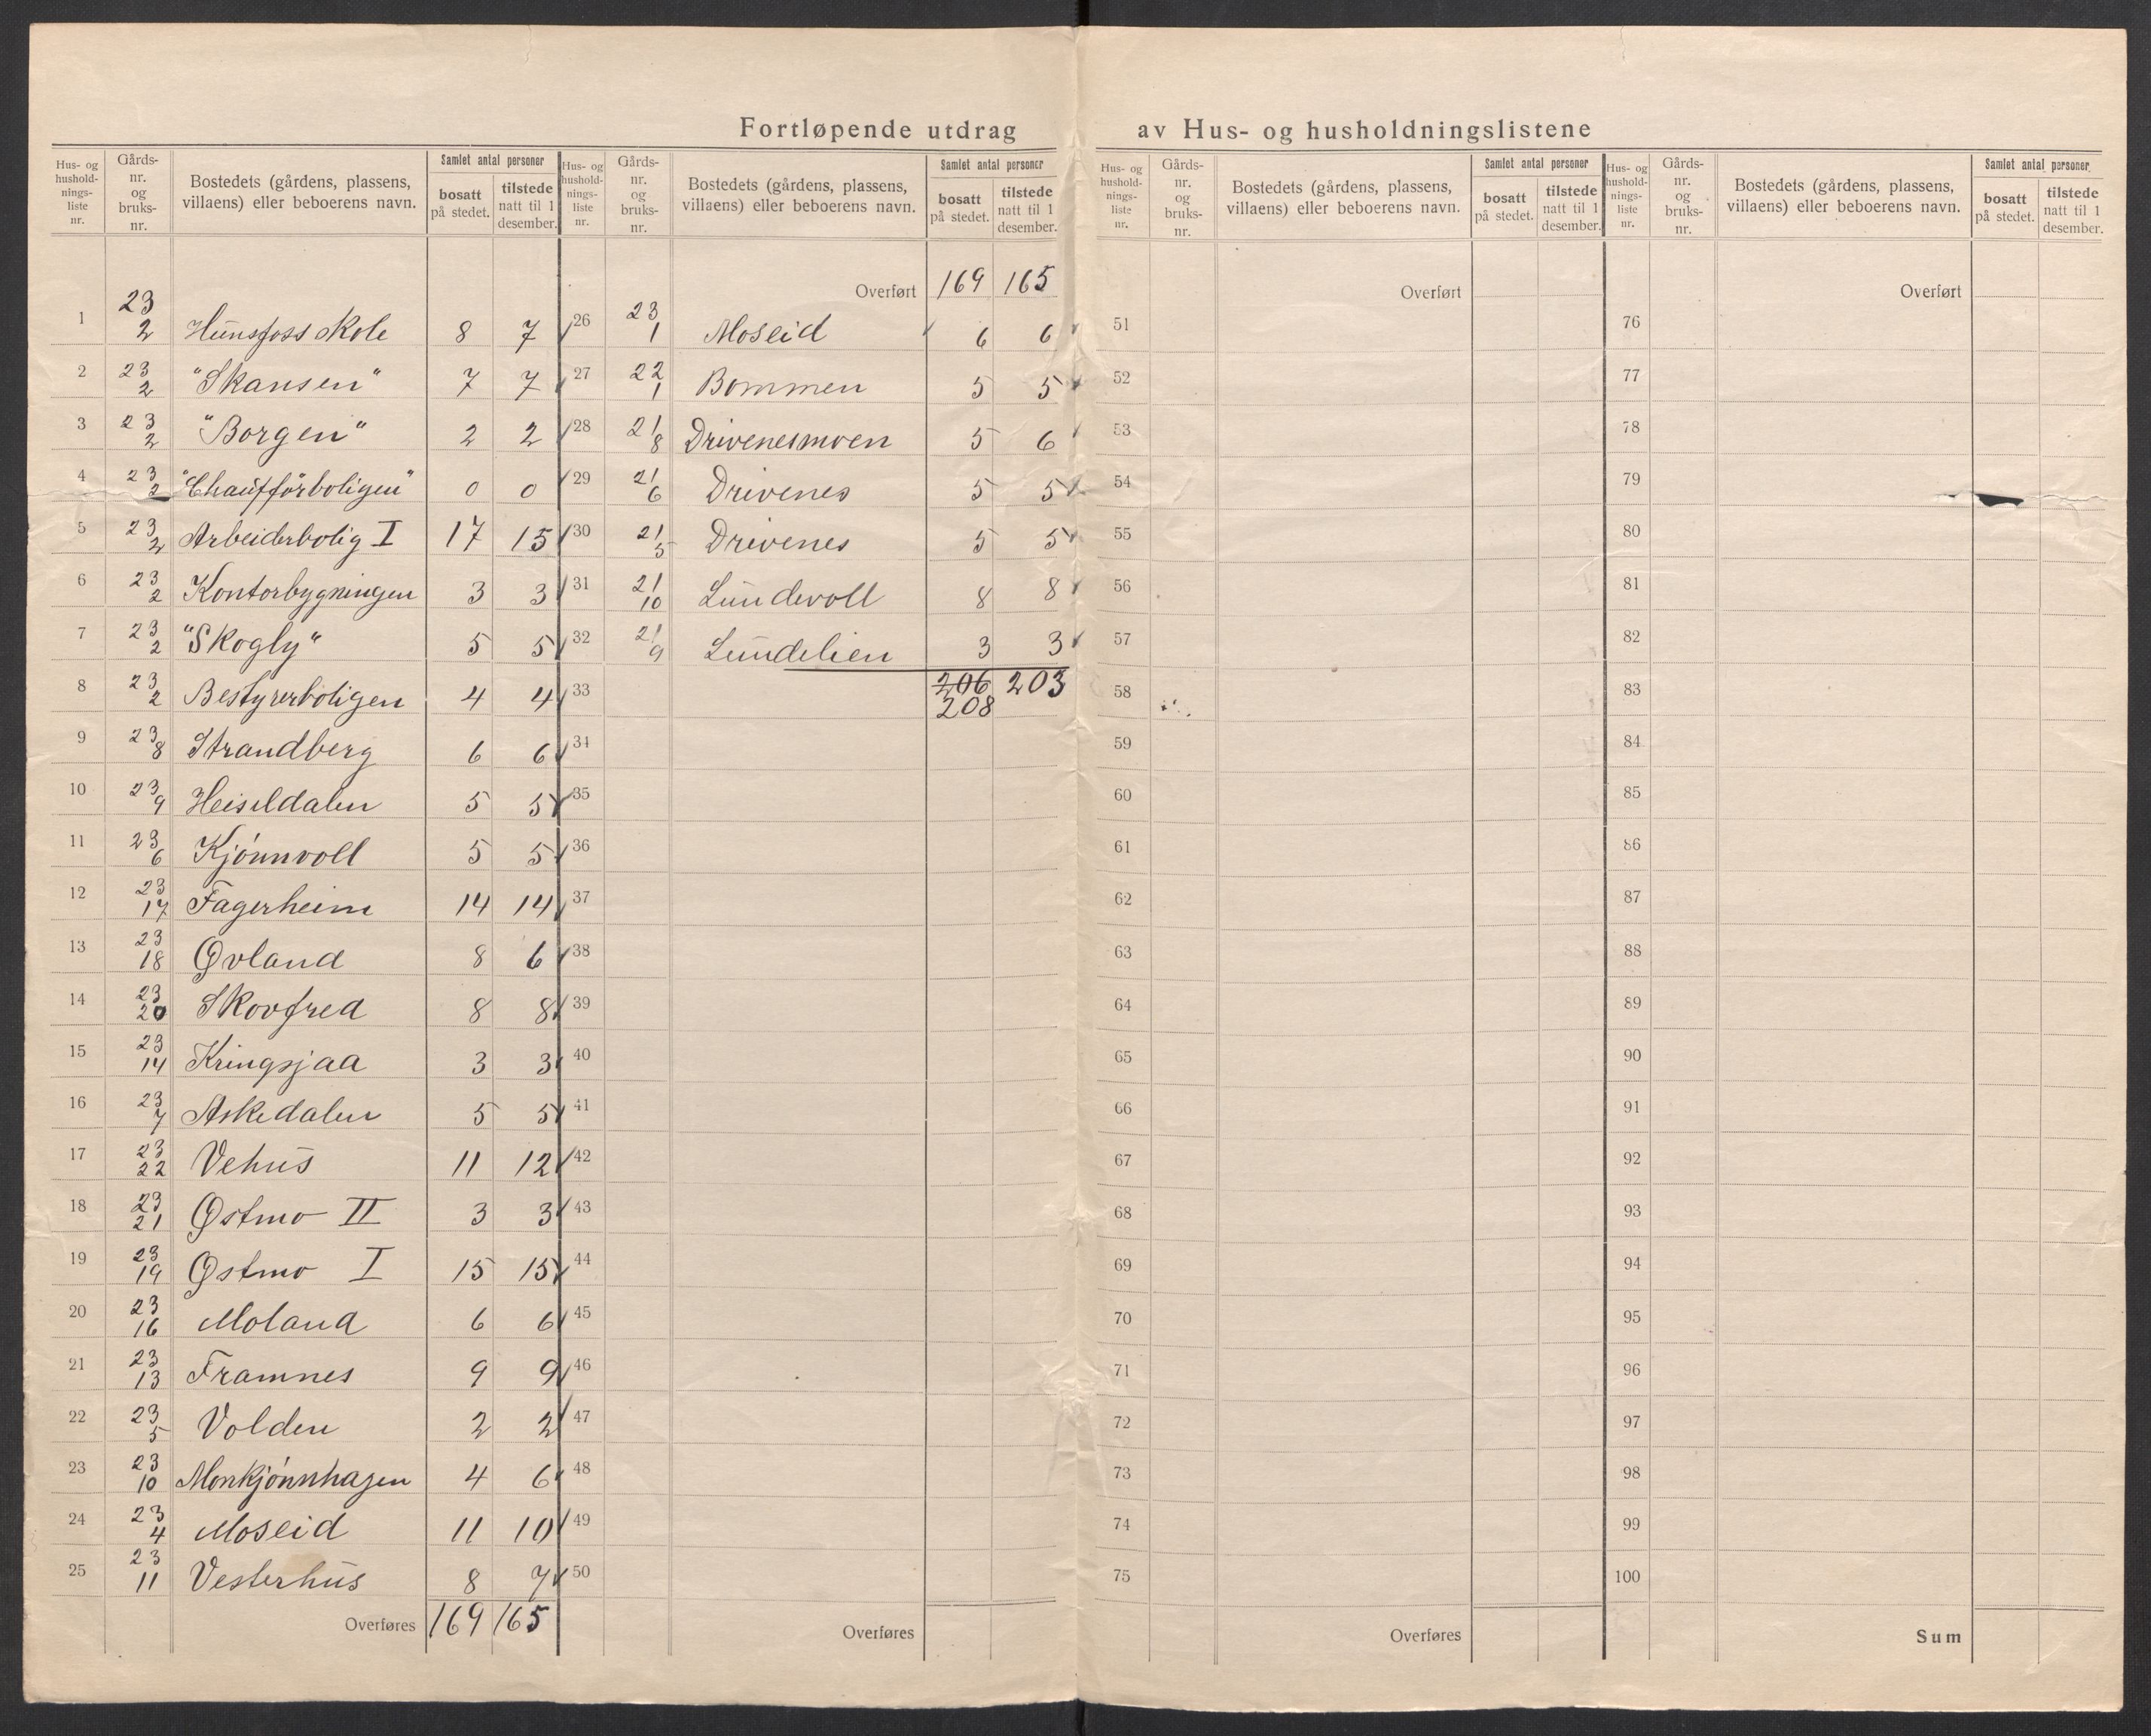 Fortløpende utdrag av Hus- og husholdningslistene
Hus- og hushold-nings-liste nr. | Gårds-nr. og bruks-nr. | Bostedets (gårdens, plassens, villaens) eller beboerens navn. | Samlet antal personer | bosatt på stedet. | tilstede natt til 1 desember.
1 23/2 Hunsfoss skole 8 7
2 23/2 "Skansen" 7 7
3 23/2 "Borgen" 2 2
4 23/2 "Chaufförboligen" 0 0
5 23/2 Arbeiderbolig I 17 15
6 23/2 Kontorbygningen 3 3
7 23/2 "Skogly" 5 5
8 23/2 Bestyrerboligen 4 4
9 23/8 Strandberg 6 6
10 23/9 Heiseldalen 5 5
11 23/6 Kjónnvoll 5 5
12 23/17 Fagerheim 14 14
13 23/18 Øvland 8 6
14 23/20 Skovfred 8 8
15 23/14 Kringsjaa 3 3
16 23/7 Askedalen 5 5
17 23/22 Vehus 11 12
18 23/21 Østmo II 3 3
19 23/19 Østmo I 15 15
20 23/16 Moland 6 6
21 23/13 Framnes 9 9
22 23/5 Volden 2 2
23 23/10 Monkjónnhagen 4 6
24 23/4 Moseid 11 10
25 23/11 Vesterhus 8 7
Overføres 169 165
Hus- og hushold-nings-liste nr. | Gårds-nr. og bruks-nr. | Bostedets (gårdens, plassens, villaens) eller beboerens navn. | Samlet antal personer | bosatt på stedet. | tilstede natt til 1 desember.
Overført 169 165
26 23/1 Moseid 6 6
27 22/1 Bommen 5 5
28 21/8 Drivenesmoen 5 6
29 21/6 Drivenes 5 5
30 21/5 Drivenes 5 5
31 21/10 Lundevoll 8 8
32 21/9 Lundelien 3 3
33 206 203
208
34
35
36
37
38
39
40
41
42
43
44
45
46
47
48
49
50
Overføres
Hus- og hushold-nings-liste nr. | Gårds-nr. og bruks-nr. | Bostedets (gårdens, plassens, villaens) eller beboerens navn. | Samlet antal personer | bosatt på stedet. | tilstede natt til 1 desember.
Overført
51
52
53
54
55
56
57
58
59
60
61
62
63
64
65
66
67
68
69
70
71
72
73
74
75
Overføres
Hus- og hushold-nings-liste nr. | Gårds-nr. og bruks-nr. | Bostedets (gårdens, plassens, villaens) eller beboerens navn. | Samlet antal personer | bosatt på stedet. | tilstede natt til 1 desember.
Overført
76
77
78
79
80
81
82
83
84
85
86
87
88
89
90
91
92
93
94
95
96
97
98
99
100
Sum